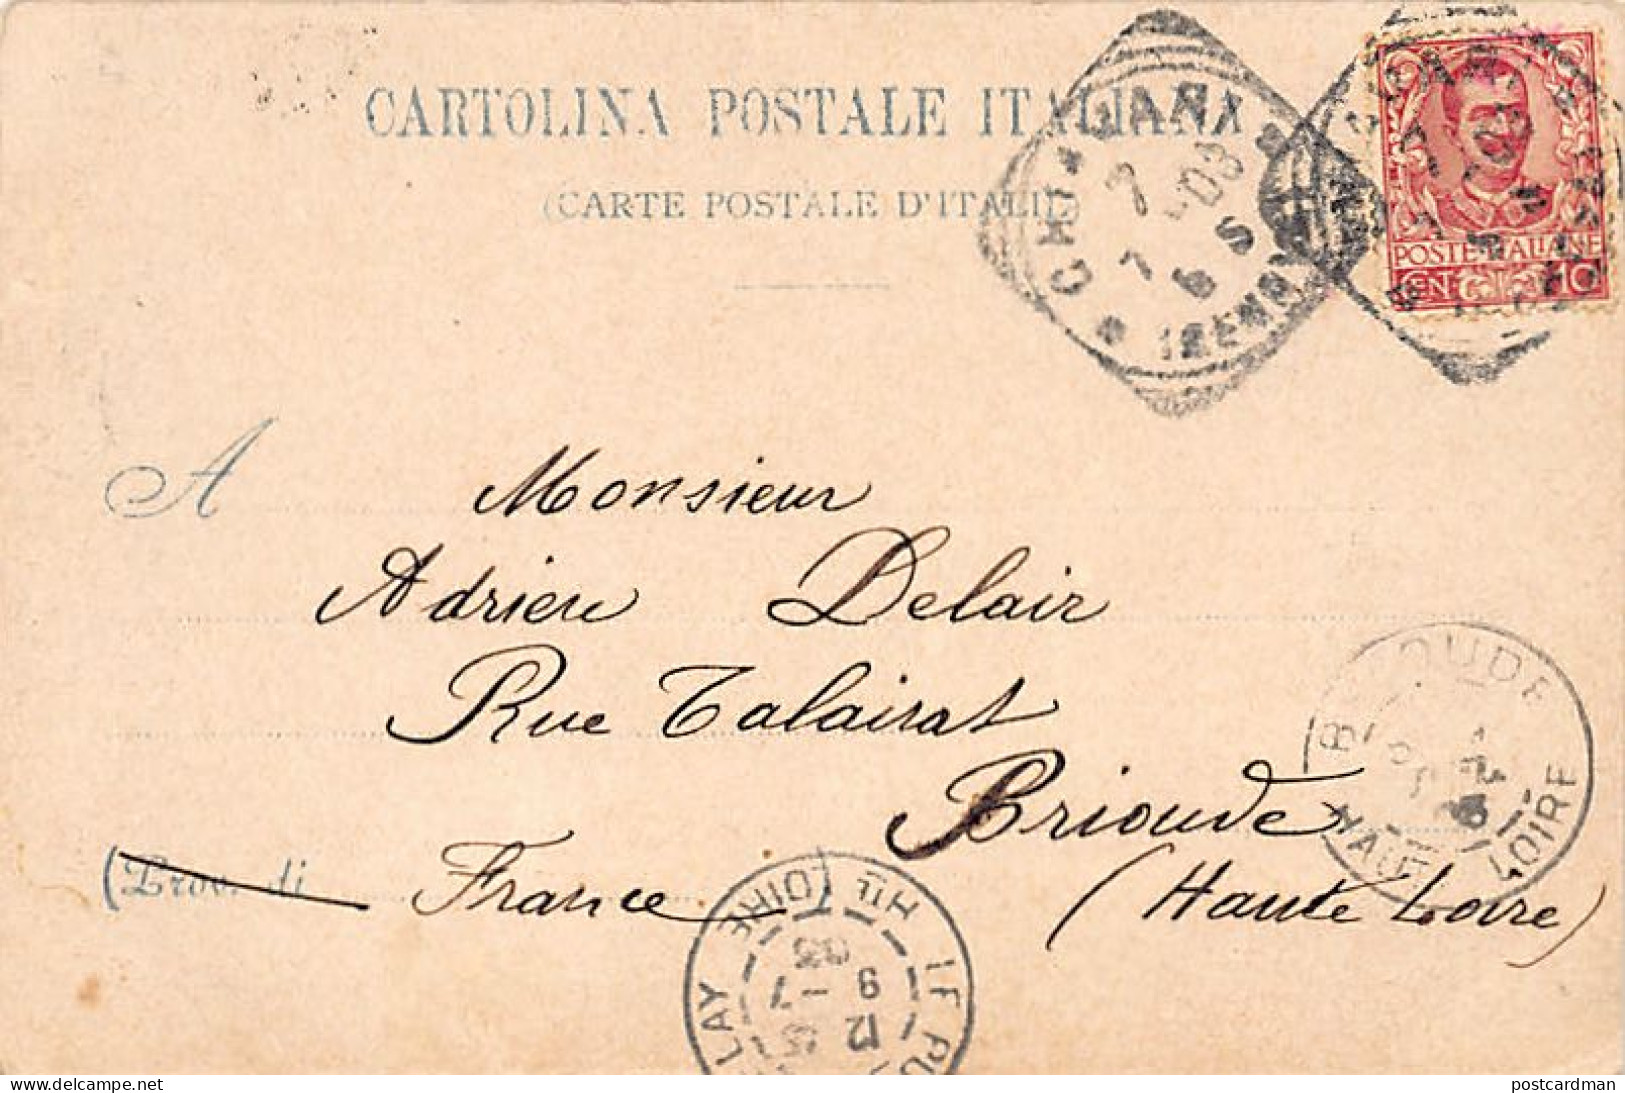 CARTOLINA POSTALE ITALIANA
(CARTE POSTALE D'ITALIE)
CHIAVARI
7 7 03
6 S
(GENOVA)
POSTE ITALIANE
CENT. 10
A Monsieur
Adrien Delair
Rue Talairat
Brioude
(Prov. di France (Haute Loire)
BRIOUDE
HAUTE LOIRE
LE PUY
HTE LOIRE
12
9 - 7
03
postcardman